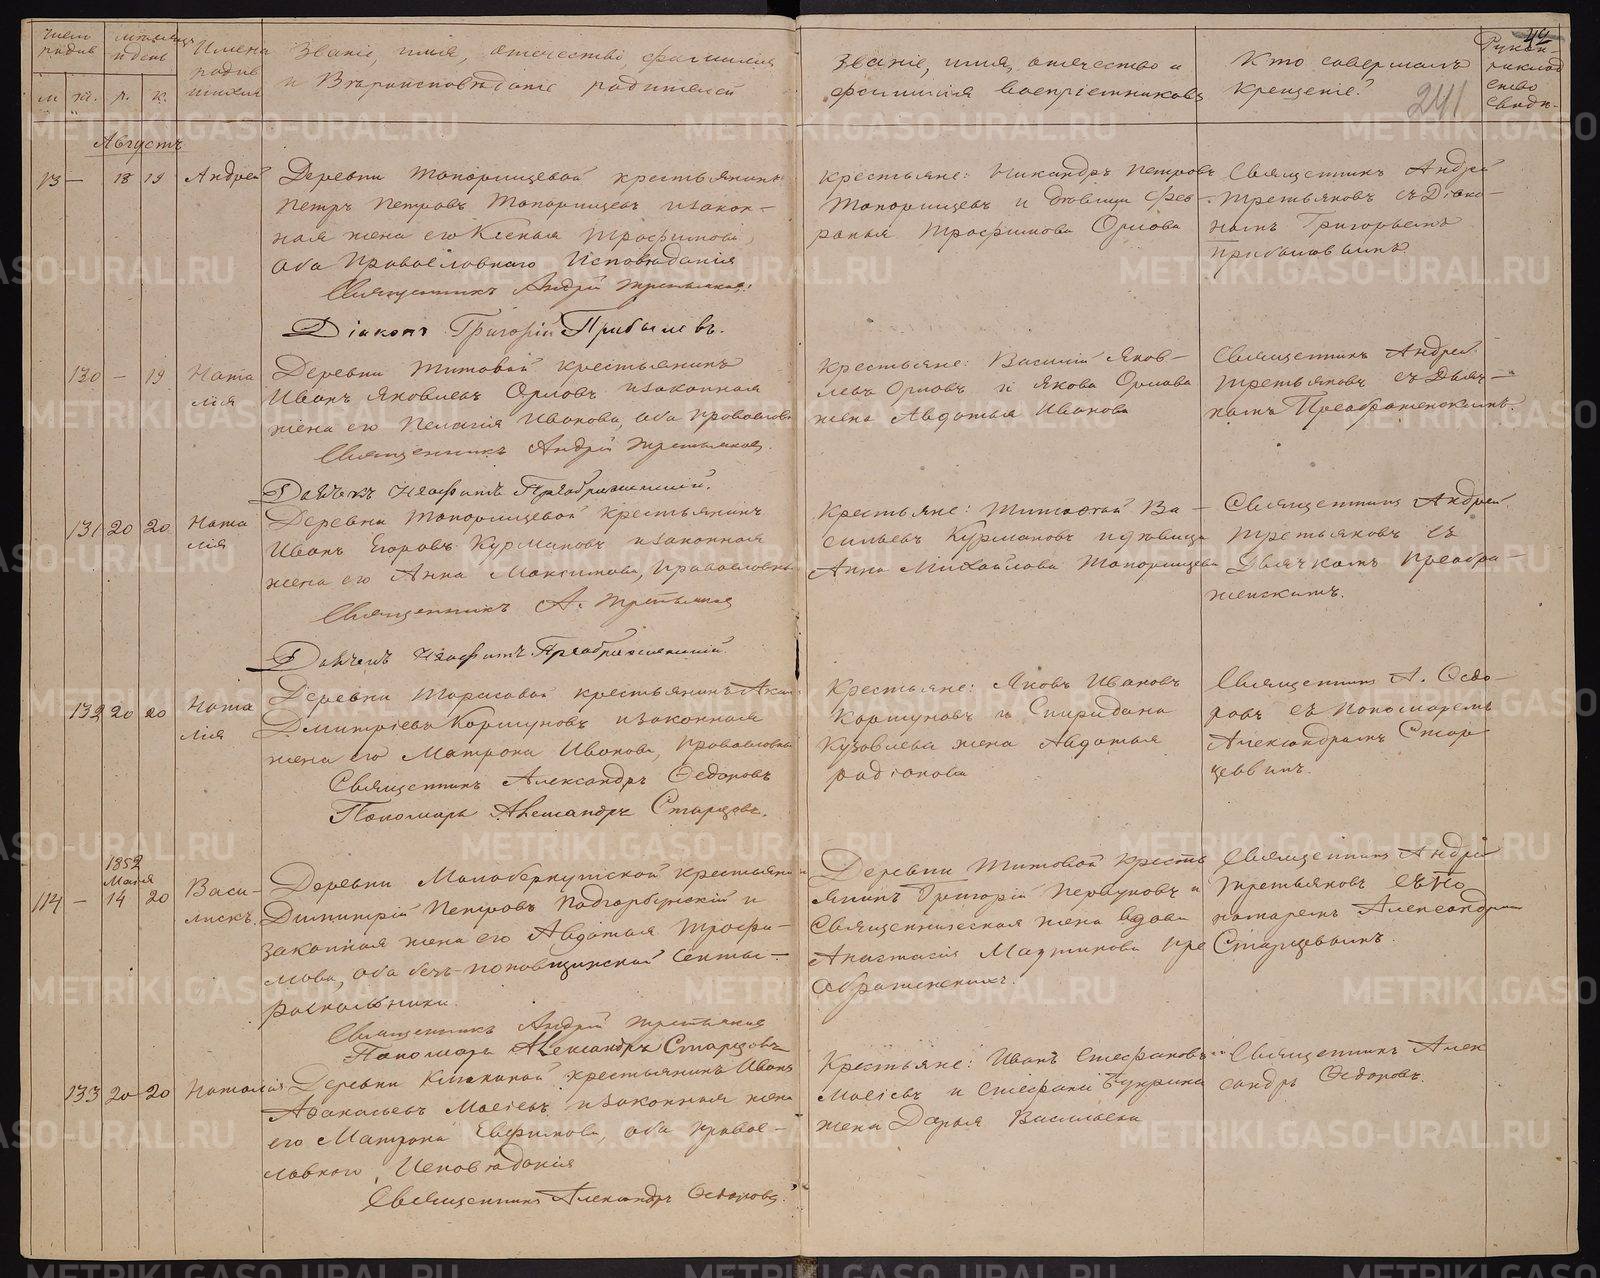 Число родив
мѣсяцъ и день
Имена родив шихся
Званіе, имя, отечество, фамилія
и Вѣроисповѣданіе родителей
Званіе, имя, отечество и
фамилія воспріемниковъ
Кто совершалъ
крещеніе?
Рукоприкладство свидѣ-
44
241
м. ж. р. к.
Августъ
18 19 Андрей
Деревни Топорищевой крестьянинъ
Петръ Петровъ Топорищевъ и закон-
ная жена его Ксенія Трофимова,
оба Православнаго Исповѣданія
Священникъ Андрей Третьяковъ.
Діаконъ Григорій Прибылевъ.
крестьяне: Никандръ Петровъ
Топорищевъ и дѣвица Фев-
ронья Трофимова Орлова
Священникъ Андрей
Третьяковъ съ Діако-
номъ Григорьемъ
Прибылевымъ.
130 — 19 Ната
лія
Деревни Титовой крестьянинъ
Иванъ Яковлевъ Орловъ и законная
жена его Пелагія Иванова, оба православн
Священникъ Андрей Третьяковъ.
Дьячекъ Неофитъ Преображенскій.
Крестьяне: Василій Яков-
левъ Орловъ и Якова Орлова
жена Авдотья Иванова
Священникъ Андрей
Третьяковъ съ Дьяч-
комъ Преображенскимъ.
131 20 20 Ната
лія
Деревни Топорищевой крестьянинъ
Иванъ Егоровъ Курмановъ и законная
жена его Анна Максимова, Православны
Священникъ А. Третьяковъ
Дьячекъ Неофитъ Преображенскій.
Крестьяне: Тимофей Ва-
сильевъ Курмановъ и дѣвица
Анна Михайлова Топорищева
Священникъ Андрей
Третьяковъ съ
Дьячкомъ Преобра-
женскимъ.
132 20 20 Ната
лія
Деревни Тарасовой крестьянинъ
Дмитріевъ Коршуновъ и законная
жена его Матрона Иванова, православны
Священникъ Александръ Ѳедоровъ
Пономарь Александръ Старцовъ.
Крестьяне: Яковъ Ивановъ
Коршуновъ и Спиридона
Кузовлева жена Авдотья
родіонова
Священникъ А. Ѳедо-
ровъ съ Пономаремъ
Александромъ Стар
цевымъ.
1852
Маія
114 — 14 20 Васи-
лискъ.
Деревни Малоберкутской крестьянинъ
Димитрій Петровъ Подгорбунскій и
законная жена его Авдотья Трофи-
мова, оба безъ-поповщинской секты-
раскольники.
Священникъ Андрей Третьяковъ
Пономарь Александръ Старцовъ
Деревни Титовой кресть
янинъ Григорій Первуновъ и
Священническая жена вдова
Анастасія Мартинова Пре
ображенскихъ.
Священникъ Андрей
Третьяковъ съ По
номаремъ Александромъ
Старцевымъ.
133 20 20 Наталія
Деревни крестьянинъ Иванъ
Аѳанасьевъ Мосіевъ и законная жена
его Матрона Евфимова, оба правос-
лавнаго Исповѣданія
Священникъ Александръ Ѳедоровъ.
Крестьяне: Иванъ Стефановъ
Мосіевъ и Стефана Букрина
жена Дарья Васильева
Священникъ Алек
сандръ Ѳедоровъ.
METRIKI.GASO-URAL.RU